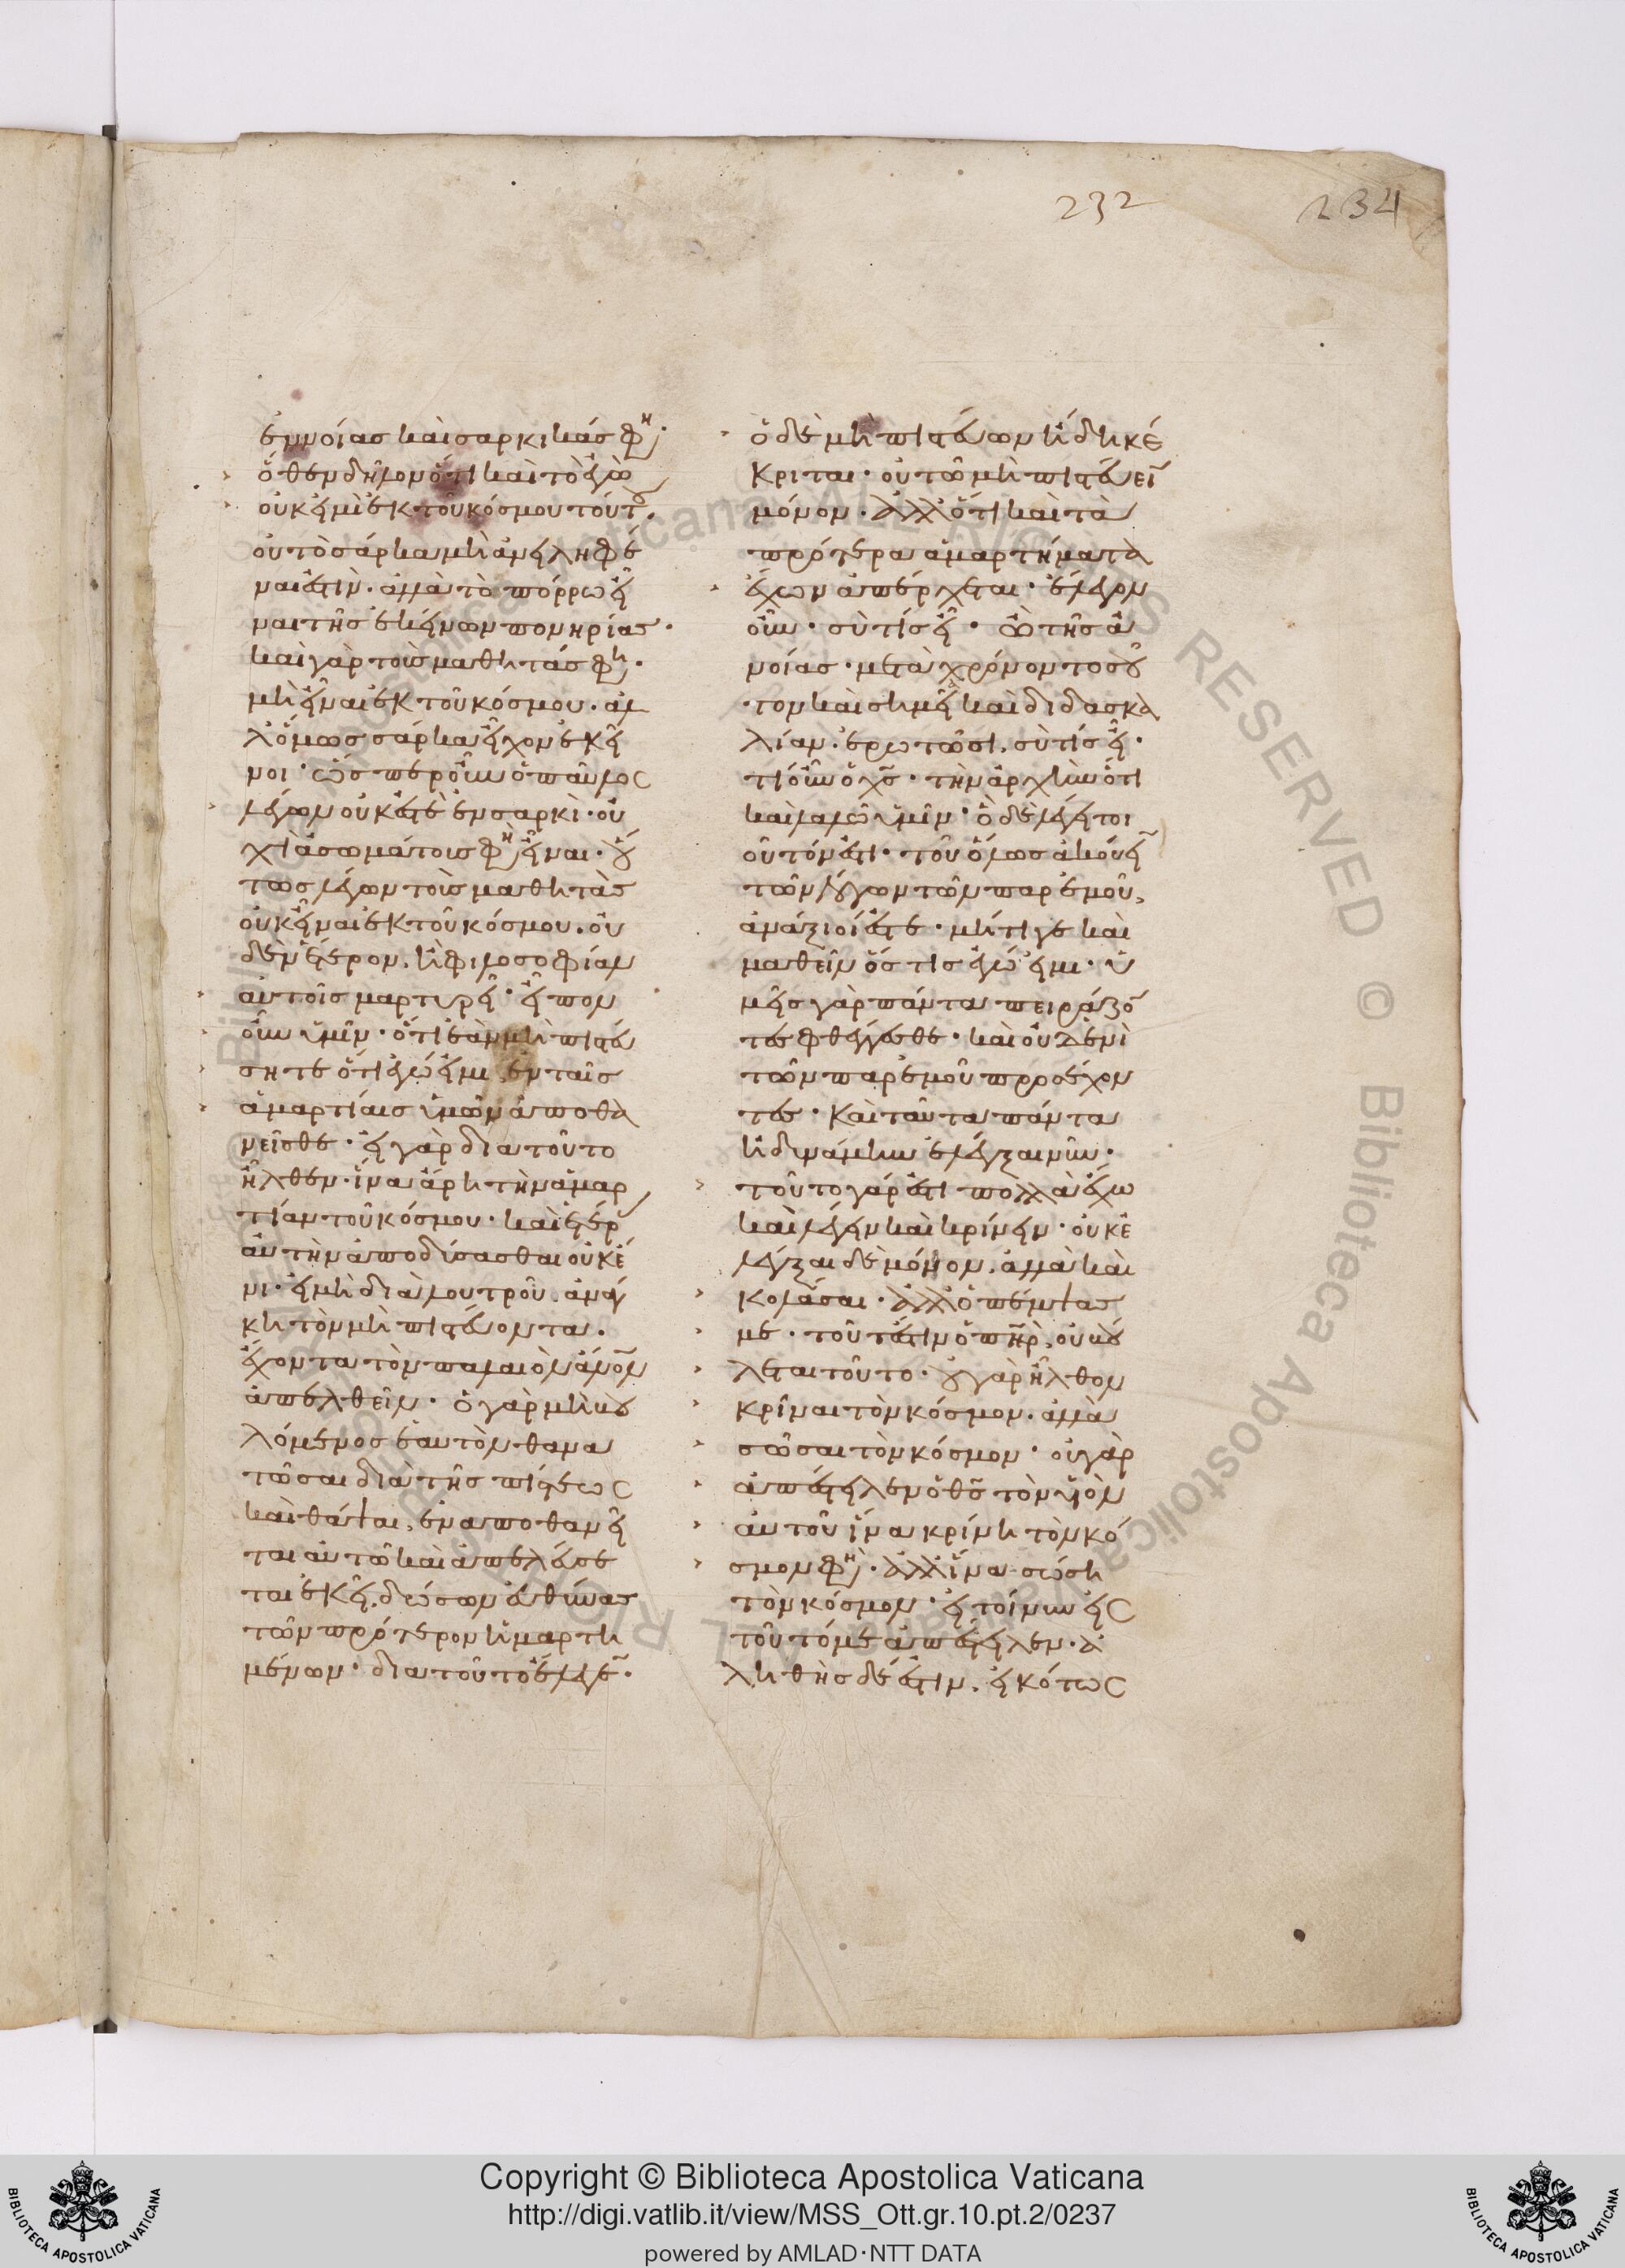 232
234
ἐννοίας καὶ σαρκικάς φη·
ὅθεν δῆλον ὅτι καὶ τὸ ἐγὼ
οὐκ εἰμὶ ἐκ τοῦ κόσμου τούτου.
οὐ τὸ σάρκα μὴ ἀνειληφέ
ναι ἐστὶν· ἀλλὰ τὸ πόρρω εἶ
ναι τῆς ἐκείνων πονηρίας·
καὶ γὰρ τοῖς μαθηταῖς φη·
μὴ εἶναι ἐκ τοῦ κόσμου· ἀλ
λ' ὅμως σάρκα εἶχον ἐκεῖ
νοι· ὥσπερ οὖν ὁ παῦλος
λέγων οὐκ ἐστὲ ἐν σαρκὶ· οὐ
χὶ ἀσωμάτους φη εἶναι· οὕ
τως λέγων τοῖς μαθηταῖς
οὐκ εἶναι ἐκ τοῦ κόσμου· οὐ
δὲν ἕτερον, ἢ φιλοσοφίαν
αὐτοῖς μαρτυρεῖ· εἶπον
οὖν ὑμῖν· ὅτι ἐὰν μὴ πιστεύ
σητε ὅτι ἐγώ εἰμι, ἐν ταῖς
ἁμαρτίαις ὑμῶν ἀποθα
νεῖσθε· εἰ γὰρ διατοῦτο
ἦλθεν· ἵνα ἄρη τὴν ἁμαρ
τίαν τοῦ κόσμου· καὶ ἑτέρως
αὐτὴν ἀποδύσασθαι οὐκ ἔ
νι· εἰ μὴ διὰ λουτροῦ· ἀνάγ
κη τὸν μὴ πιστεύοντα.
ἔχοντα τὸν παλαιὸν ἄνον
ἀπελθεῖν· ὁ γὰρ μὴ βου
λόμενος ἑαυτὸν θανα
τῶσαι διὰ τῆς πίστεως
καὶ θάψαι, ἐναποθανεῖ
ται αὐτῶ καὶ ἀπελεύσε
ται ἐκεῖ, δώσων εὐθύνας
τῶν πρότερον ἡμαρτη
μένων· διατοῦτο ἔλεγεν·
ὁ δὲ μὴ πιστεύων ἤδη κέ
κριται· οὐ τῶ μὴ πιστεύειν
μόνον· ἀλλ' ὅτι καὶ τὰ
πρότερα ἁμαρτήματα
ἔχων ἀπέρχεται· ἔλεγον
οὖν· σὺ τίς εἶ· ὢ τῆς ἀ
νοίας· μετὰ χρόνον τοσοῦ
τον καὶ σημεῖα καὶ διδασκα
λίαν· ἐρωτῶσι, σὺ τίς εἶ·
τί οὖν ὁ χς· τὴν ἀρχὴν ὅτι
καὶ λαλῶ ὑμῖν· ὃ δὲ λέγει τοι
οῦτόν ἐστι· τοῦ ὅλως ἀκούειν
τῶν λόγων τῶν παρ' ἐμοῦ,
ἀνάξιοί ἐστε· μήτι γε καὶ
μαθεῖν ὅστις ἐγώ εἰμι· ὑ
μεῖς γὰρ πάντα πειράζον
τες φθέγγεσθε· καὶ οὐδενὶ
τῶν παρ' ἐμοῦ προσέχον
τες· καὶ ταῦτα πάντα
ἠδυνάμην ἐλέγξαι νῦν·
τοῦτο γάρ ἐστι πολλὰ ἔχω
καὶ λέγειν καὶ κρίνειν· οὐκ ἐ
λέγξαι δὲ μόνον, ἀλλὰ καὶ
κολάσαι· ἀλλ' ὁ πέμψας
με· τουτέστιν ὁ πηρ, οὐ βού
λεται τοῦτο· οὐ γὰρ ἦλθον
κρῖναι τὸν κόσμον· ἀλλὰ
σῶσαι τὸν κόσμον· οὐ γὰρ
ἀπέστειλεν ὁ θς τὸν υἱὸν
αὐτοῦ ἵνα κρίνη τὸν κό
σμον φη· ἀλλ' ἵνα σώση
τὸν κόσμον· εἰ τοίνυν εἰς
τοῦτό με ἀπέστειλεν· ἀ
ληθὴς δέ ἐστιν, εἰκότως
Copyright © Biblioteca Apostolica Vaticana
http://digi.vatlib.it/view/MSS_Ott.gr.10.pt.2/0237
powered by AMLAD·NTT DATA
BIBLIOTECA APOSTOLICA VATICANA
BIBLIOTECA APOSTOLICA VATICANA